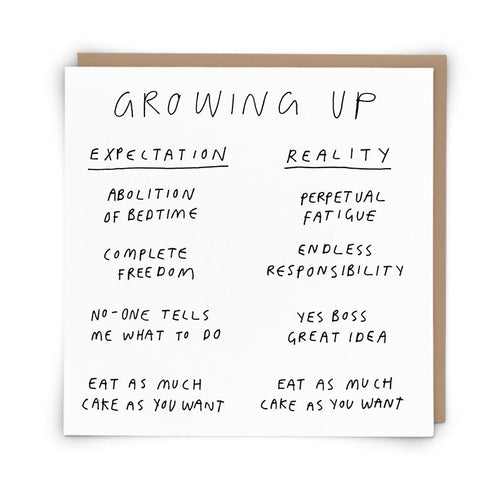 GROWING UP
EXPECTATION
REALITY
ABOLITION
OF BEDTIME
PERPETUAL
FATIGUE
COMPLETE
FREEDOM
ENDLESS
RESPONSIBILITY
NO-ONE TELLS
ME WHAT TO DO
YES BOSS
GREAT IDEA
EAT AS MUCH
CAKE AS YOU WANT
EAT AS MUCH
CAKE AS YOU WANT